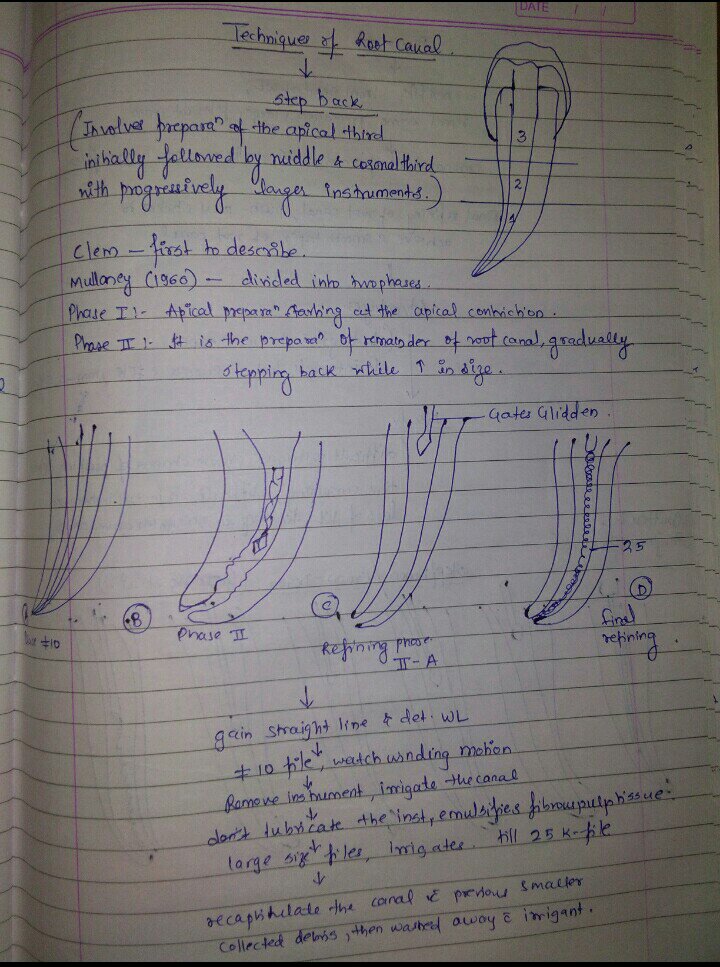 DATE / /
Techniques of Root Canal.
↓
step back
(Involves preparaⁿ of the apical third
initially followed by middle & coronal third
with progressively larger instruments.)
3
2
1
Clem – first to describe.
Mullaney (1960) – divided into two phases.
Phase I :- Apical preparaⁿ starting at the apical constriction.
Phase II :- It is the preparaⁿ of remainder of root canal, gradually
stepping back while ↑ in size.
Gates Glidden.
25
#10
B
Phase II
C
Refining phase
II-A
D
final
refining.
↓
gain straight line & det. WL
↓
#10 file, watch winding motion
↓
Remove instrument, irrigate the canal
↓
don't lubricate the inst, emulsifies fibrous pulp tissue.
↓
large size files, Irrigates. till 25 K-file
↓
recapitulate the canal c̄ previous smaller
collected debris, then washed away c̄ irrigant.